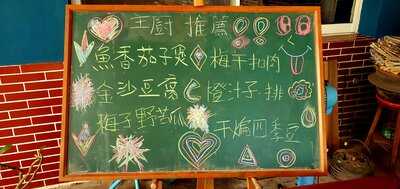 主廚 推薦
魚香茄子煲 梅干扣肉
金沙豆腐 橙汁子排
梅子野苦瓜 干煸四季豆